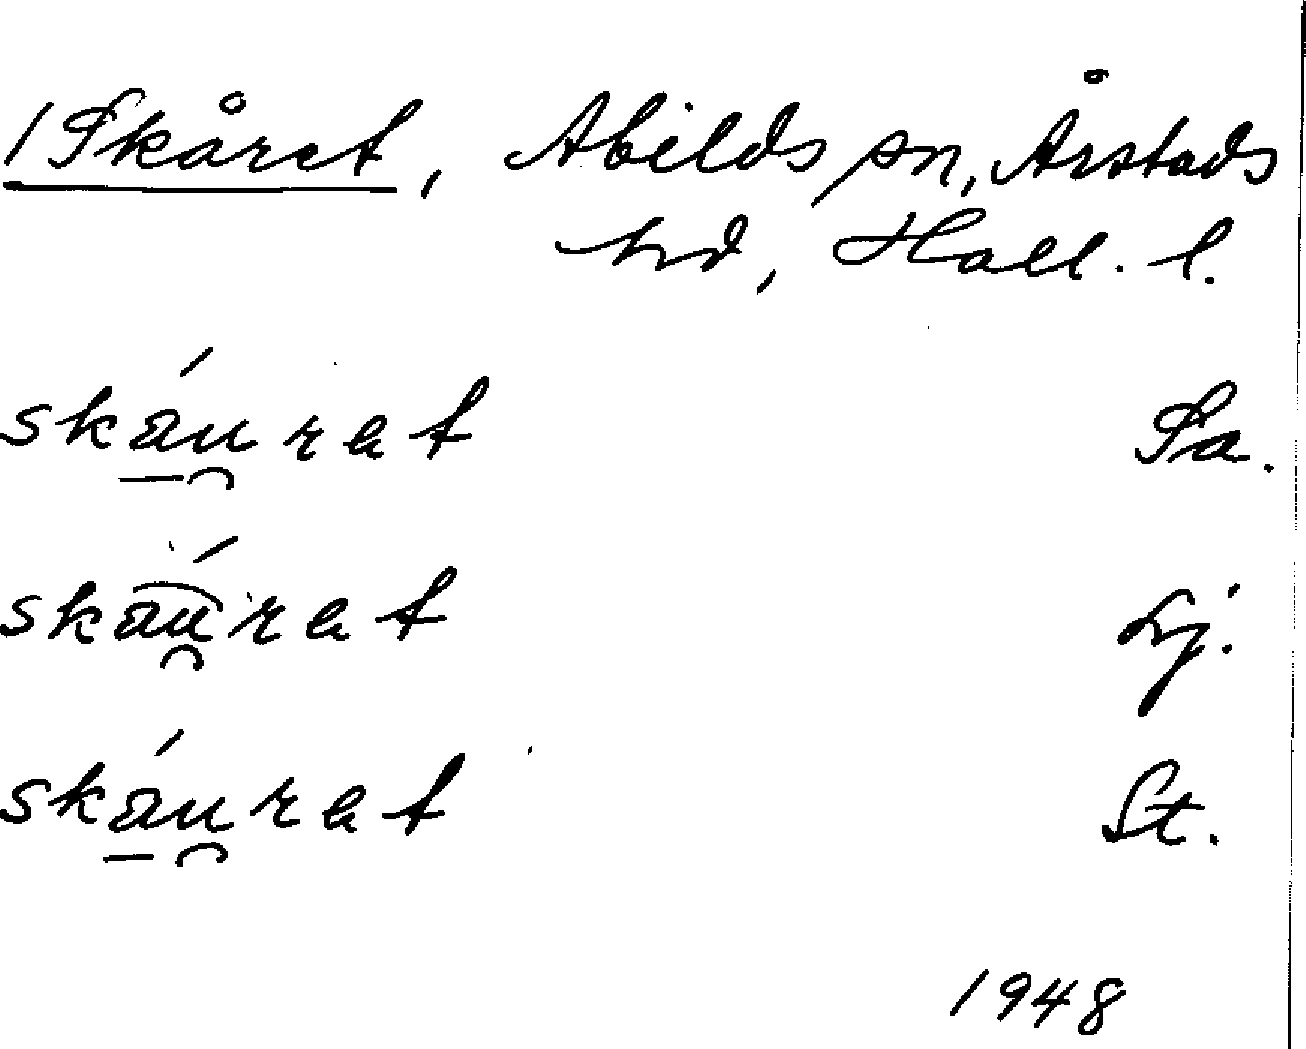 /Skåret, Abilds sn, Årstads
hd, Hall. l.
skáu̯rat Sa.
skáu̯rat Lj.
skáu̯rat St.
1948